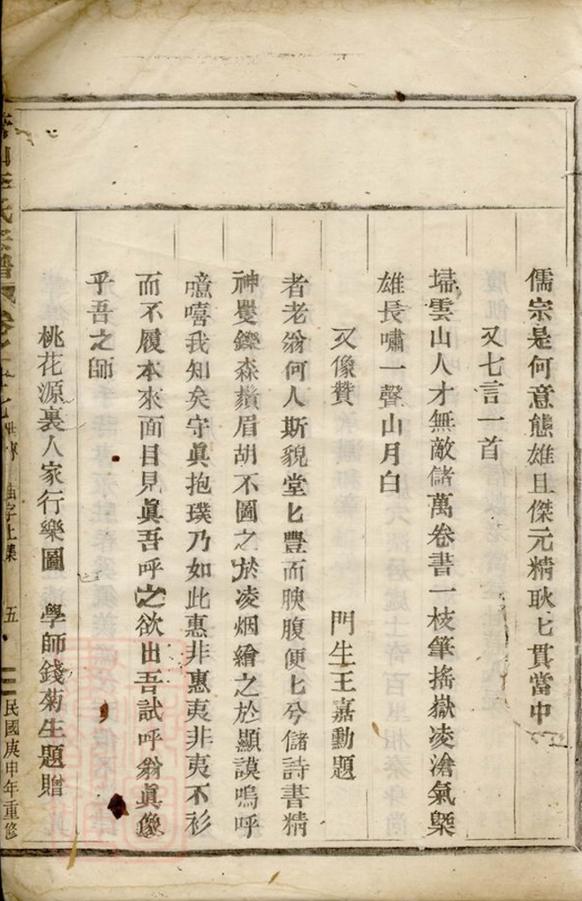 儒宗是何意態雄且傑元精耿匕貫當中
又七言一首
埽雲山人才無敵儲萬卷書一枝筆搖嶽凌滄氣槩
雄長嘯一聲山月白
又像贊
門生王嘉勳題
耆老翁何人斯貌堂匕豐而腴腹便匕兮儲詩書精
神矍鑠森鬚眉胡不圖之於凌烟繪之於顯謨嗚呼
噫嘻我知矣守眞抱璞乃如此惠非惠夷非夷不衫
而不履本來面目見眞吾呼之欲出吾試呼翁眞像
乎吾之師
桃花源裏人家行樂圖
學師錢菊生題贈
山
氏宗譜
卷
五
民國庚申年重修